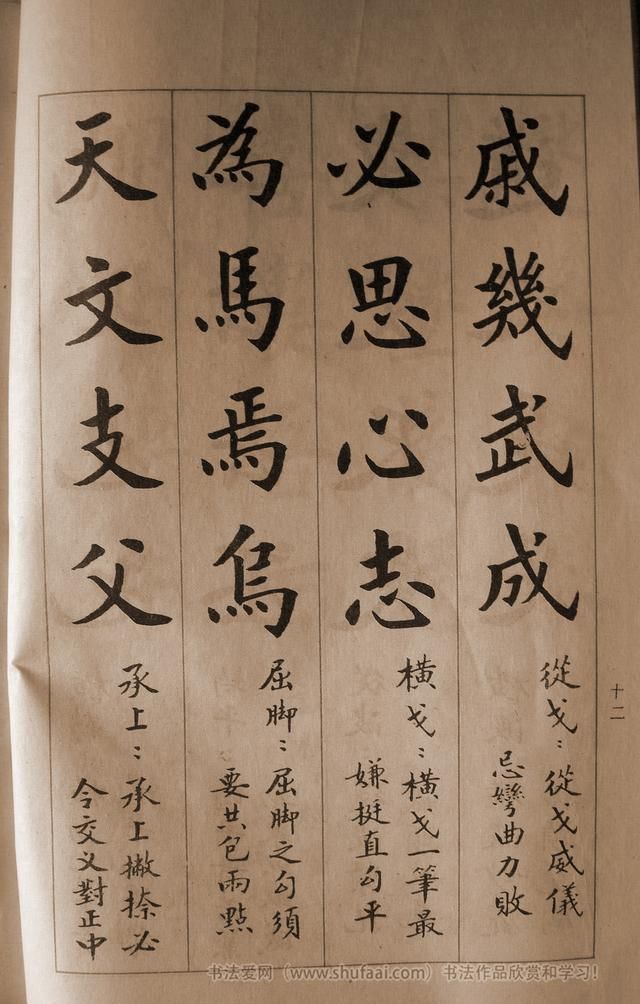 戚幾武成
從戈：從戈威儀
忌彎曲力敗
必思心志
橫戈：橫戈一筆最
嫌挺直勾平
為馬焉烏
屈脚：屈脚之勾須
要共包兩點
天文支父
承上：承上撇捺必
令交义對正中
十二
书法爱网（www.shufaai.com）书法作品欣赏和学习！